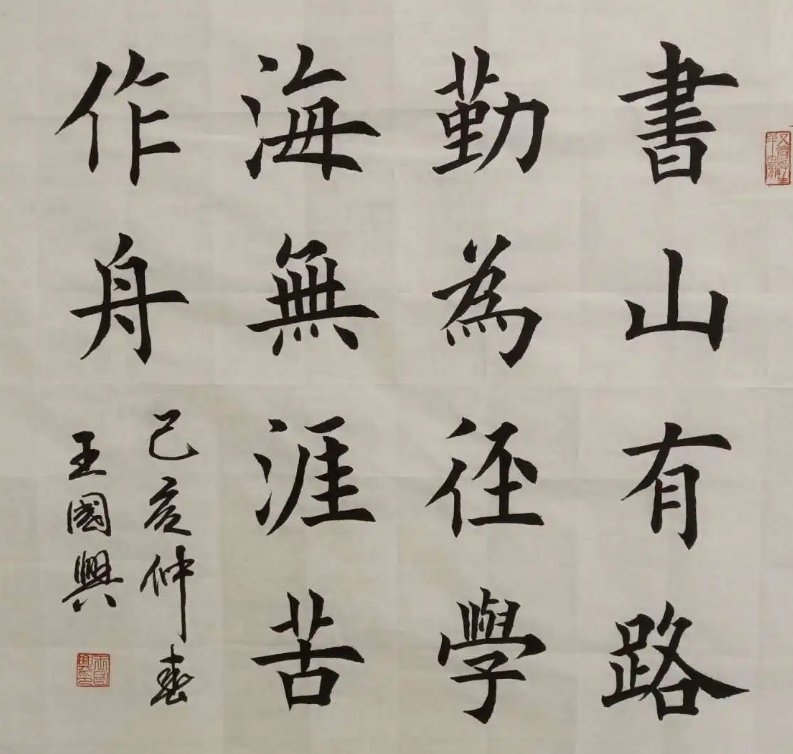 書山有路
勤為徑學
海無涯苦
作舟
己亥仲春
王國興